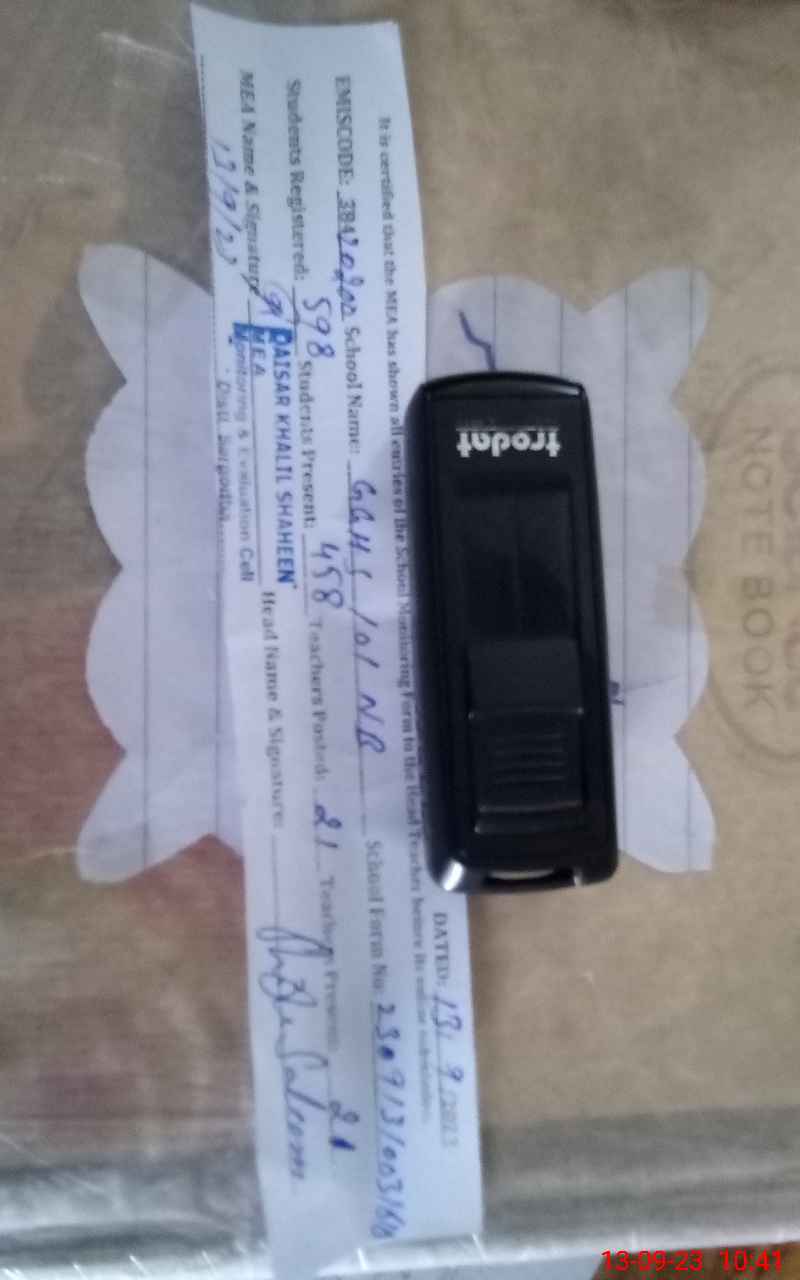 DATED: 13. 9 /2023
It is certified that the MEA has shown all entries of the School Monitoring Form to the Head Teacher before its online submission.
EMISCODE: 38420200 School Name: GGHS 101 NB School Form No: 230913/003/
Students Registered: 598 Students Present: 458 Teachers Posted: 21 Teachers Present: 21
MEA Name & Signature Head Name & Signature:
13/9/23
QAISAR KHALIL SHAHEEN
MEA
Monitoring & Evaluation Cell
Distt. Sargodha
trodat
NOTE BOOK
13-09-23 10:41